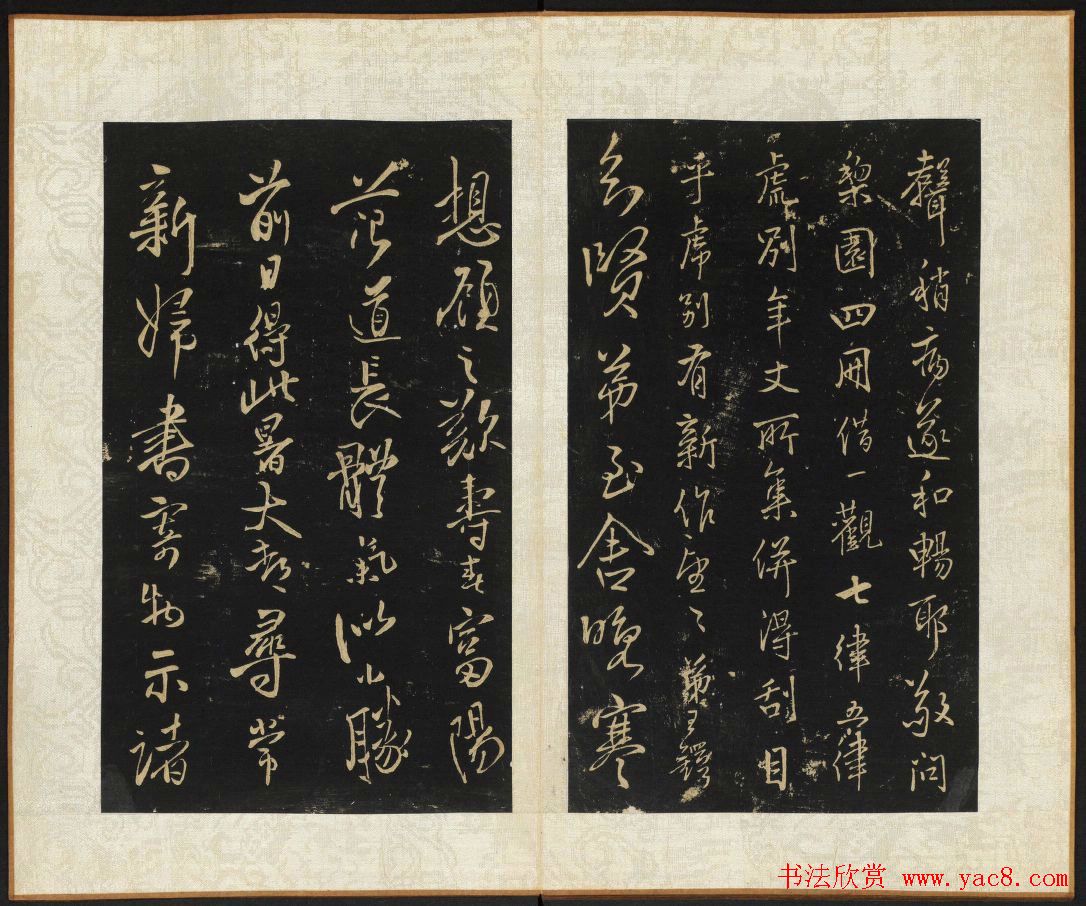 聲稍病遂和暢耶敬問
棃園四冊借一觀七律五律
處別年丈所集併得刮目
乎處別有新作望〻弟王鐸
賢弟至舍晚寒
想顧之歎壽春富陽
道長體氣似小勝
前日得此暑大都尋常
新婦書寄物示諸
书法欣赏 www.yac8.com